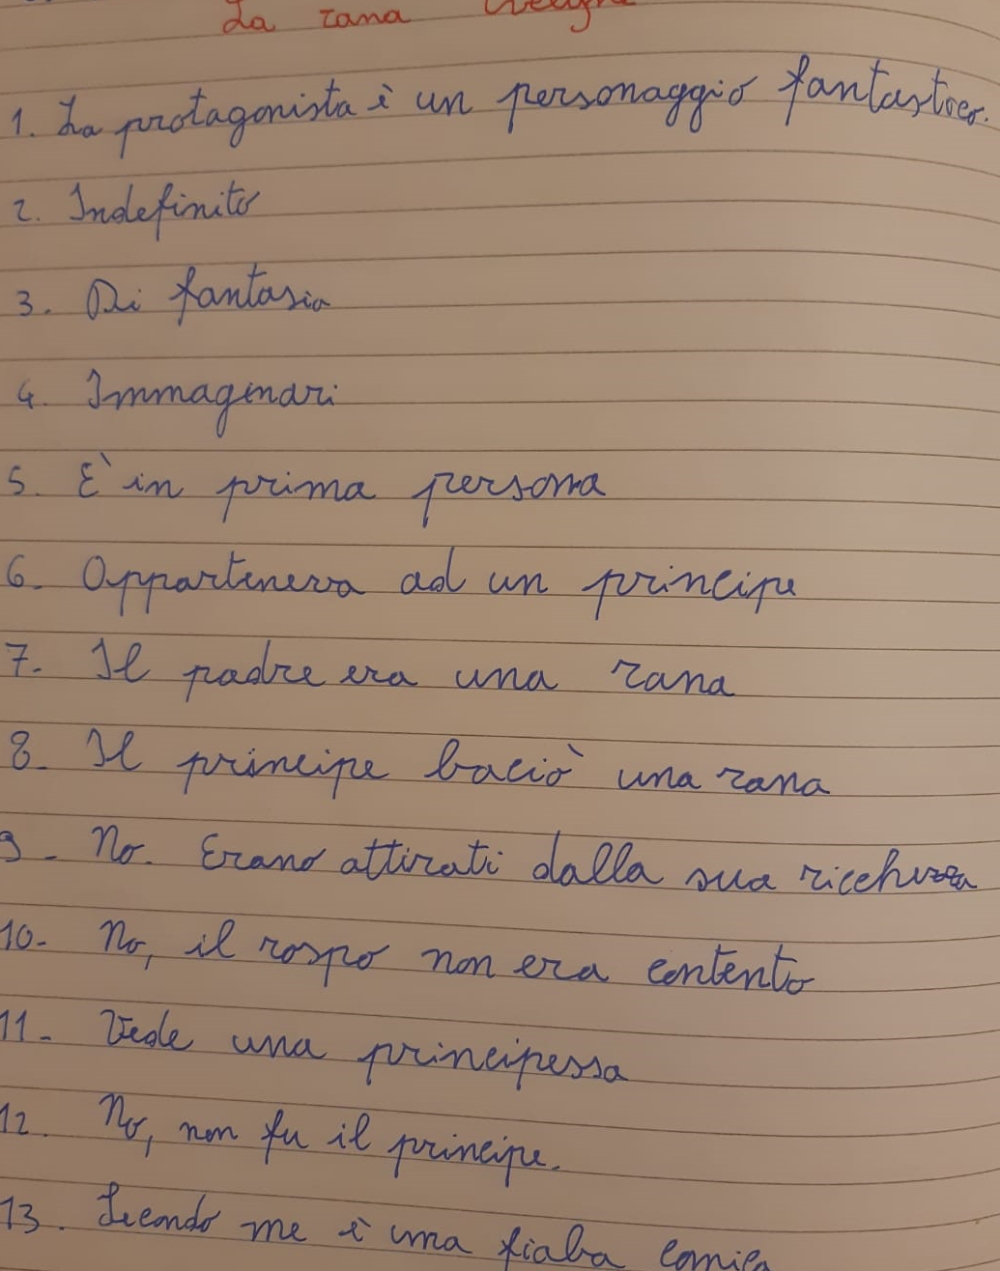 La rana
1. La protagonista è un personaggio fantastico.
2. Indefinito
3. Di fantasia
4. Immaginari
5. È in prima persona
6. Apparteneva ad un principe
7. Il padre era una rana
8. Il principe baciò una rana
9. No. Erano attirati dalla sua ricchezza
10. No, il rospo non era contento
11. Vede una principessa
12. No, non fu il principe.
13. Secondo me è una fiaba comica